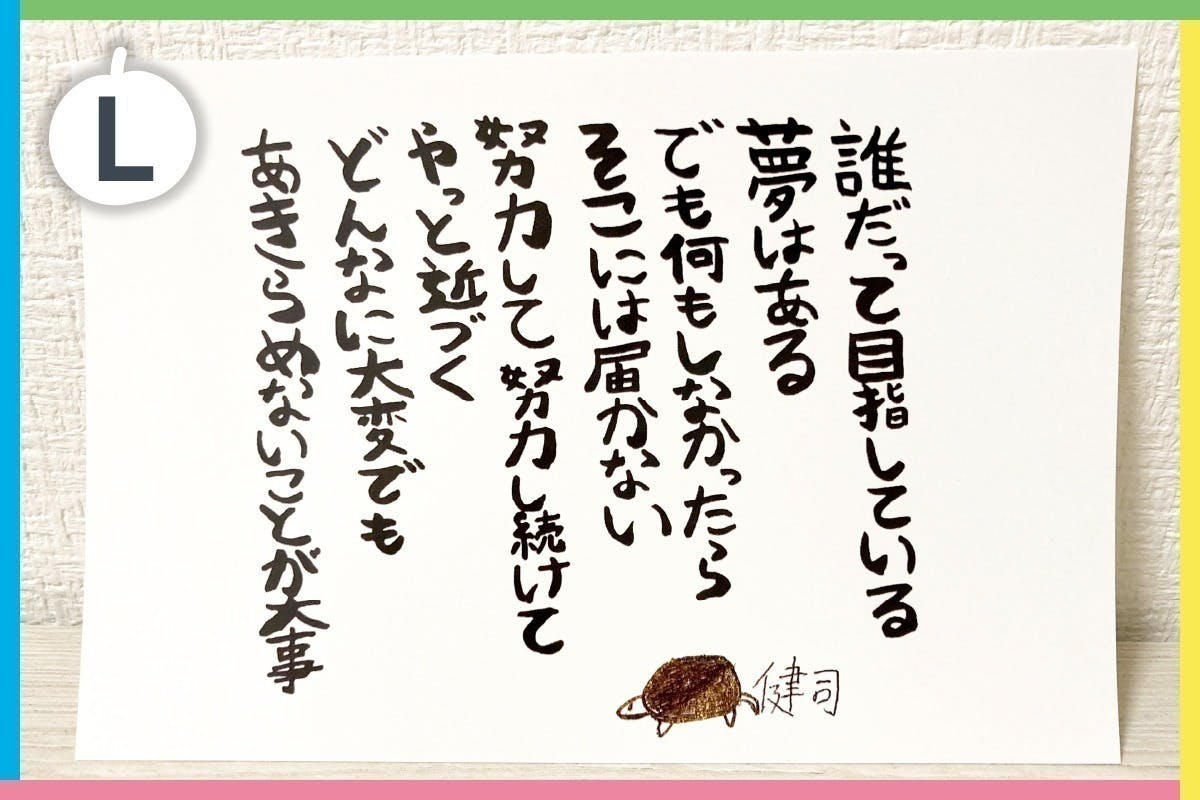 L
誰だって目指している
夢はある
でも何もしなかったら
そこには届かない
努力して努力し続けて
やっと近づく
どんなに大変でも
あきらめないことが大事
健司